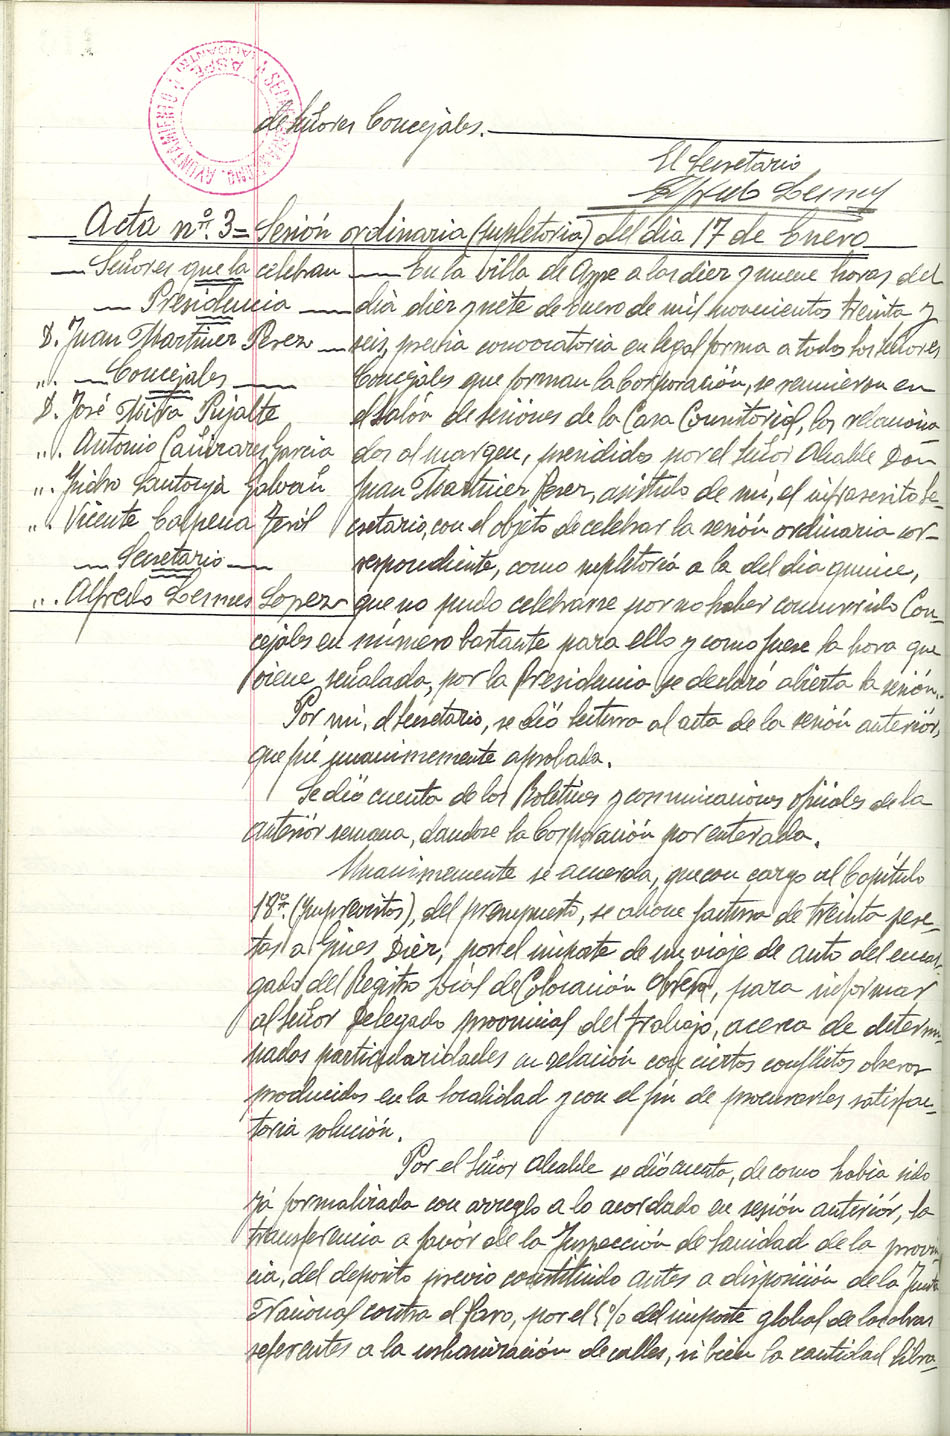 AYUNTAMIENTO
ASPE (ALICANTE)
de Señores Concejales.
El Secretario
Acta nº. 3= Sesión ordinaria (supletoria) del dia 17 de Enero
Señores que la celebran
Presidencia
D. Juan Martinez Perez
„. Concejales
D. José Mira Pujalte
„. Antonio Cañizares Garcia
„. Ysidro Santonja Galvañ
„. Vicente Calpena
Secretario
„. Alfredo Lesmes Lopez
En la villa de Aspe a las diez y nueve horas del
dia diez y siete de Enero de mil novecientos treinta y
seis, previa convocatoria en legal forma a todos los Señores
Concejales que forman la Corporación, se reunieron en
el Salón de sesiones de la Casa Consistorial, los relaciona-
dos al margen, presididos por el Señor Alcalde Don
Juan Martinez Perez, asistido de mi, el infrascrito Se-
cretario, con el objeto de celebrar la sesión ordinaria cor-
respondiente, como supletoria a la del dia quince,
que no pudo celebrarse por no haber concurrido Con-
cejales en número bastante para ello y como fuese la hora que
viene señalada, por la Presidencia se declaró abierta la sesión.
Por mi, el Secretario, se dió lectura al acta de la sesión anteriór,
que fué unanimemente aprobada.
Se dió cuenta de los Boletines y comunicaciones oficiales de la
anteriór semana, dandose la Corporación por enterada.
Unanimemente se acuerda, que con cargo al Capítulo
18º. (Imprevistos), del presupuesto, se abone factura de treinta pese-
tas a Gines Diez, por el importe de un viaje de auto del encar-
gado del Registro Local de Colocación Obrera, para informar
al Señor Delegado provincial del trabajo, acerca de determi-
nados particularidades en relación con ciertos conflictos obreros
producidos en la localidad y con el fin de procurarles satisfac-
toria solución.
Por el Señor Alcalde se dió cuenta, de como habia sido
yá formalizada con arreglo a lo acordado en sesión anteriór, la
transferencia a favór de la Inspección de Sanidad de la provin-
cia, del deposito previo constituido antes a disposición de la Junta
Nacional contra el Paro, por el 5% del importe global de las obras
referentes a la urbanización de calles, si bien la cantidad libra-